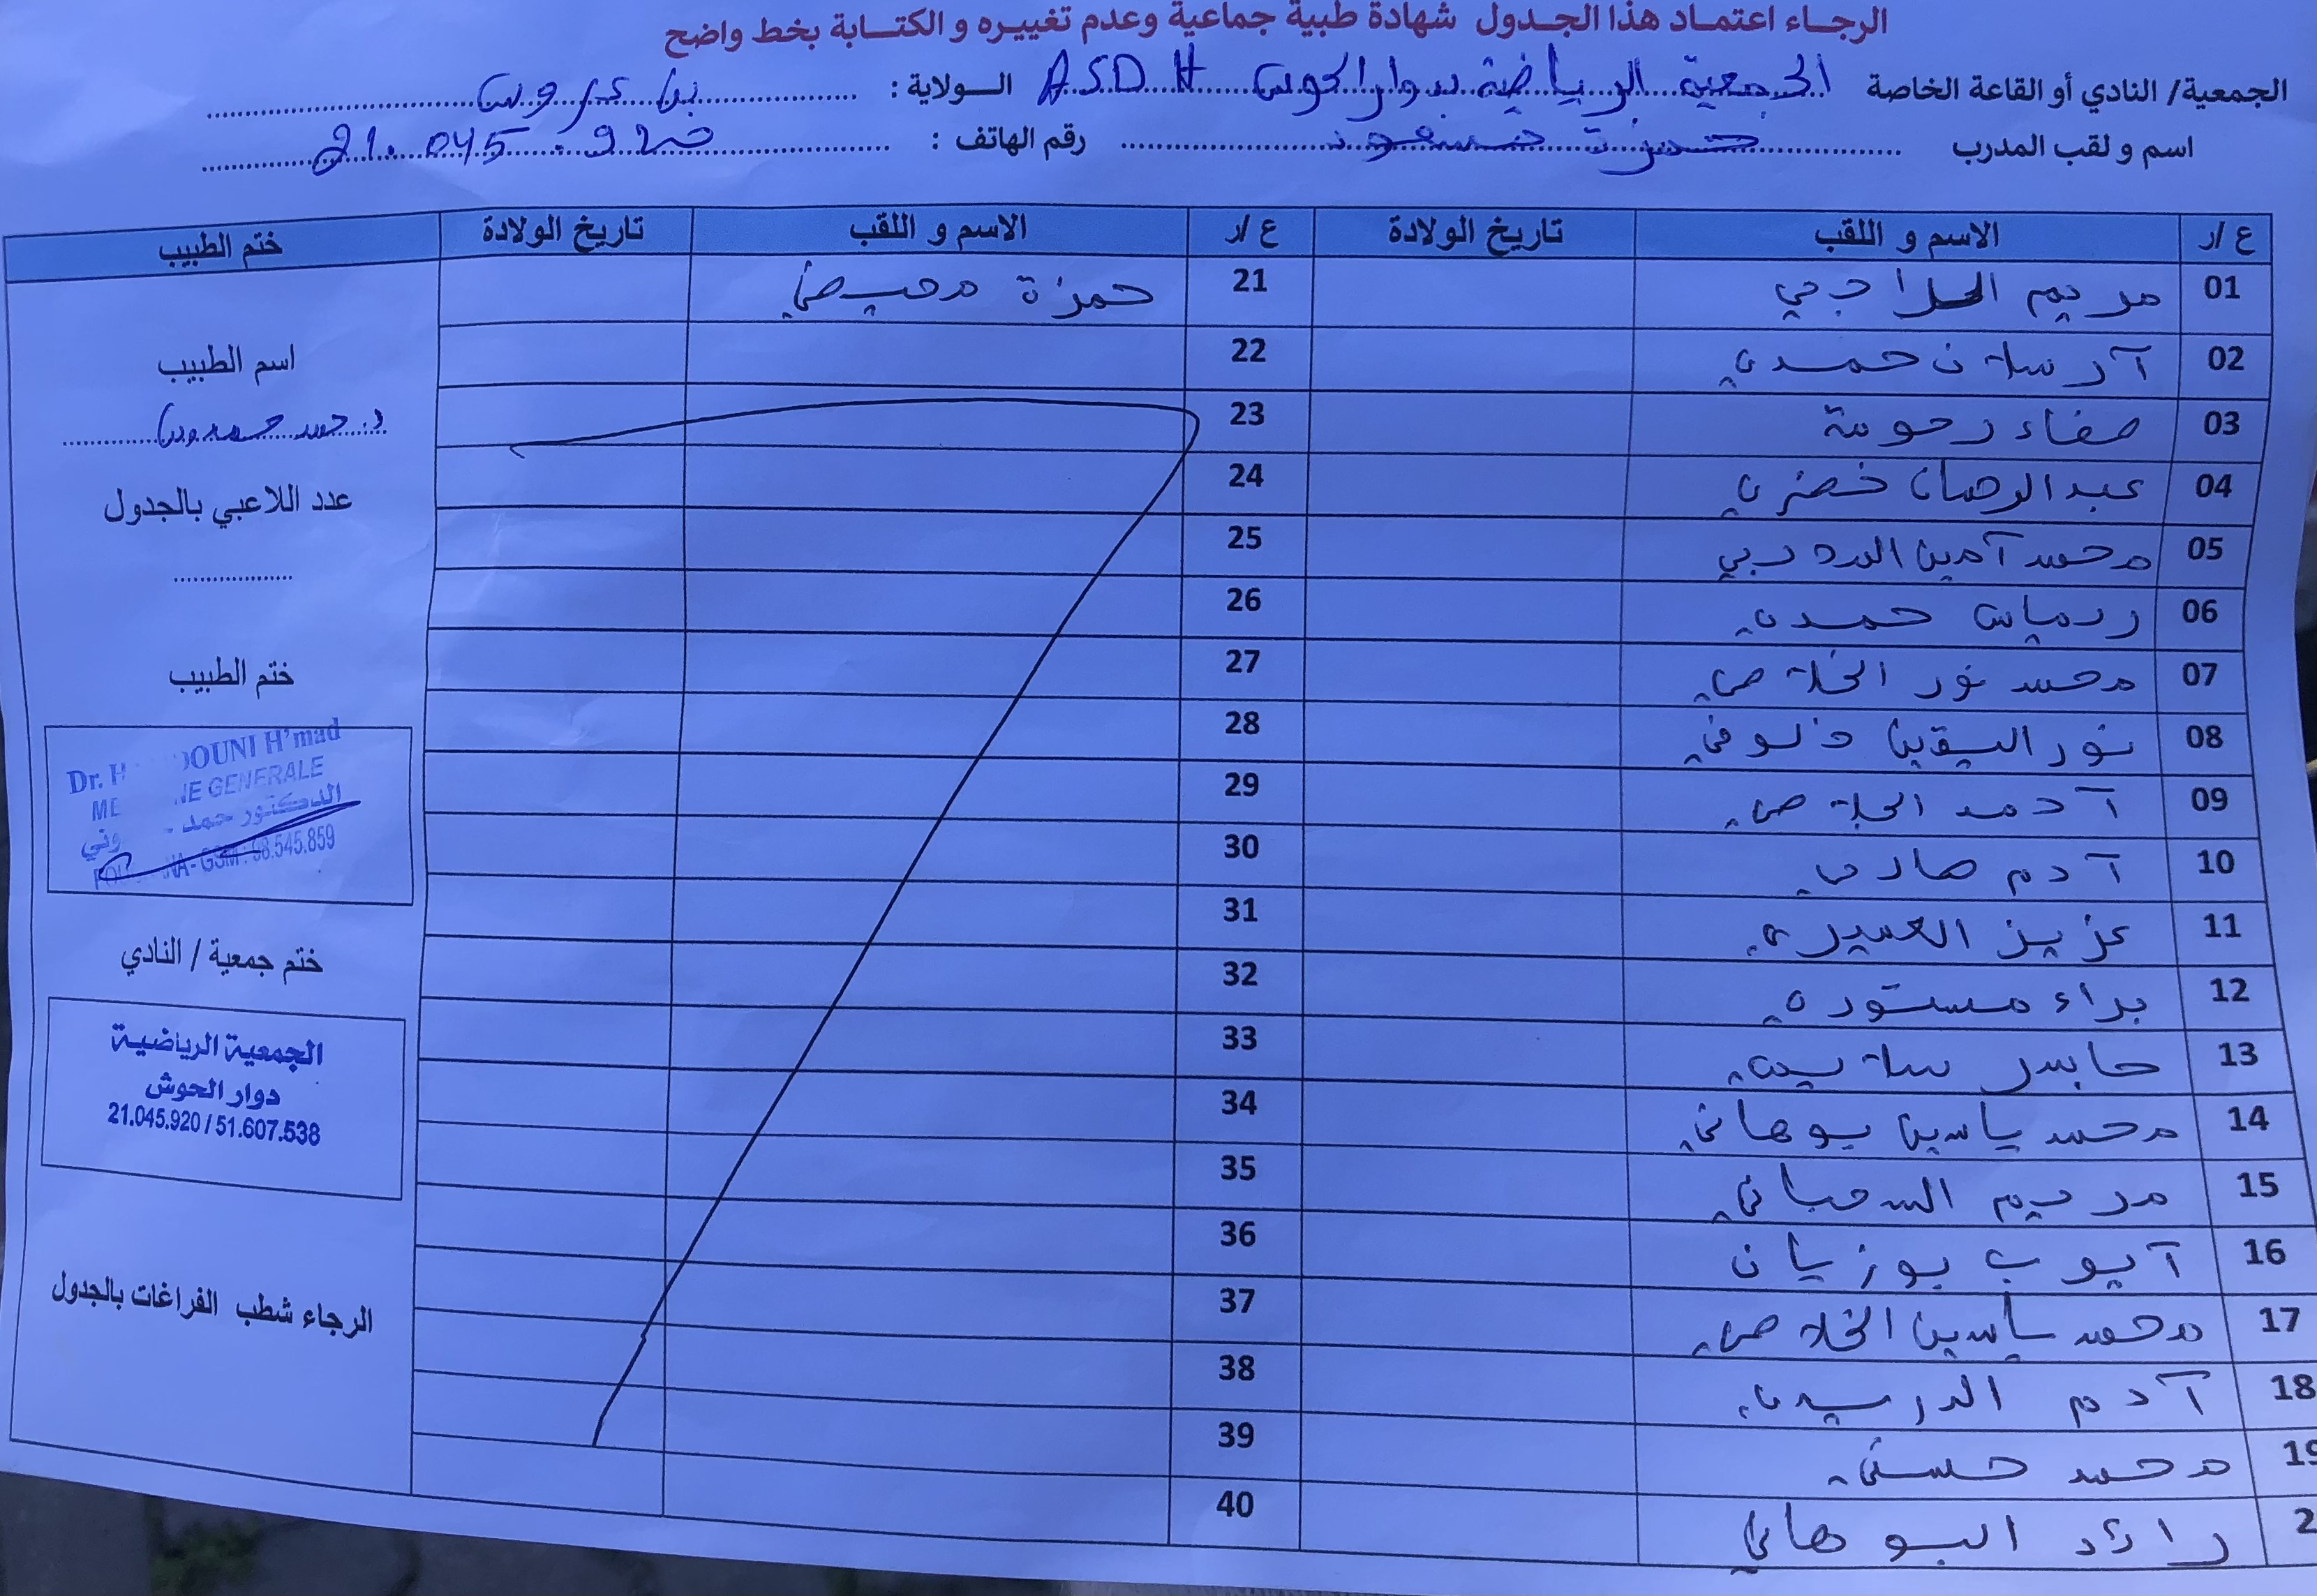 الرجاء اعتماد هذا الجدول شهادة طبية جماعية وعدم تغييره و الكتابة بخط واضح
الجمعية/ النادي أو القاعة الخاصة الجمعية الرياضية بدوار الحوش A.S.D.H الولاية : بن عروس
اسم و لقب المدرب حمزة رقم الهاتف : 21.045.920
ع /ر الاسم و اللقب تاريخ الولادة ع /ر الاسم و اللقب تاريخ الولادة ختم الطبيب
01 مريم 21 حمزة
02 آرسلان حمدي 22
03 صفاء رحومة 23
04 عبد الرحمان خضري 24
05 محمد آمين 25
06 ريماس حمدي 26
07 محمد نور الخلاصي 27
08 نور اليقين 28
09 29
10 آدم 30
11 عزيز العميري 31
12 براء مستوري 32
13 33
14 محمد ياسين بوهاني 34
15 مريم 35
16 آيوب بوزيان 36
17 محمد ياسين الخلاصي 37
18 آدم الدريدي 38
19 محمد حسني 39
2 رائد البوهاني 40
اسم الطبيب
عدد اللاعبي بالجدول
ختم الطبيب
Dr. H DOUNI H'mad
ME NE GENERALE
الدكتور حمد وني
NA - GSM : 98.545.859
ختم جمعية / النادي
الجمعية الرياضية
دوار الحوش
21.045.920 / 51.607.538
الرجاء شطب الفراغات بالجدول